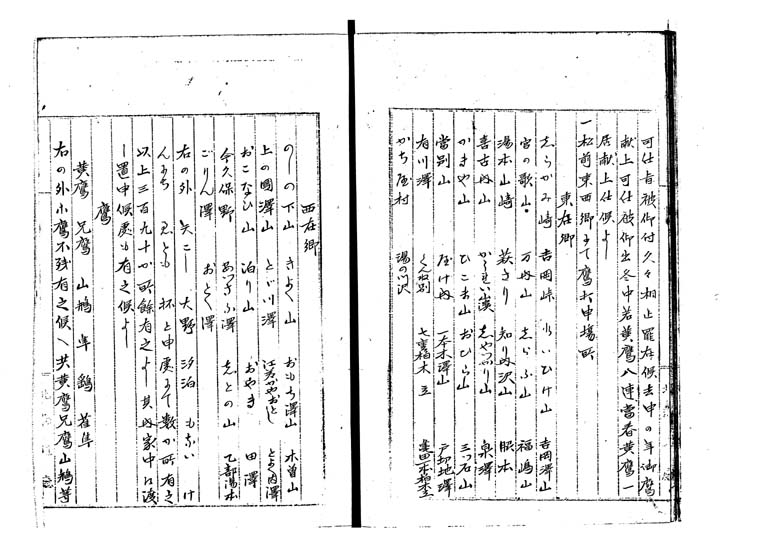 可仕旨被仰付久々相止罷在候去申の年御鷹
献上可仕被仰出冬中若黄鷹八連當春黄鷹一
居献上仕候よし
一松前東西郷にて鷹打申場所
東在郷
しらかみ崎 吉岡峠 れいひけ山 吉岡澤山
宮の歌山 万内山 しらふ山 福嶋山
湯本山崎 萩さり 知り内沢山 脇本
喜古内山 しやつかり山 泉澤
かまや山 ひこま山 おひら山 三ツ石山
當別山 屋け内 一本木澤山 戸切地澤
有川澤 くんね別 七重福木立
かち屋村 湯の川沢
西在郷
のしの下山 きよく山 おもち澤山 木曽山
上の國澤山 とど川澤 とよ内澤
おこなひ山 泊り山 おやま 田澤
今久保野 あつさふ澤 しとの山 乙部湯本
ごりん澤 おとく澤
右の外 大野 汐泊
杯と申處にて数か所有之
以上三百九十か所餘有之よし其内家中江渡
し置申候處も有之候よし
鷹
黄鷹 兄鷹 山鵤 隼 鷂 雀隼
右の外小鷹不残有之候へ共黄鷹兄鷹山鵤等